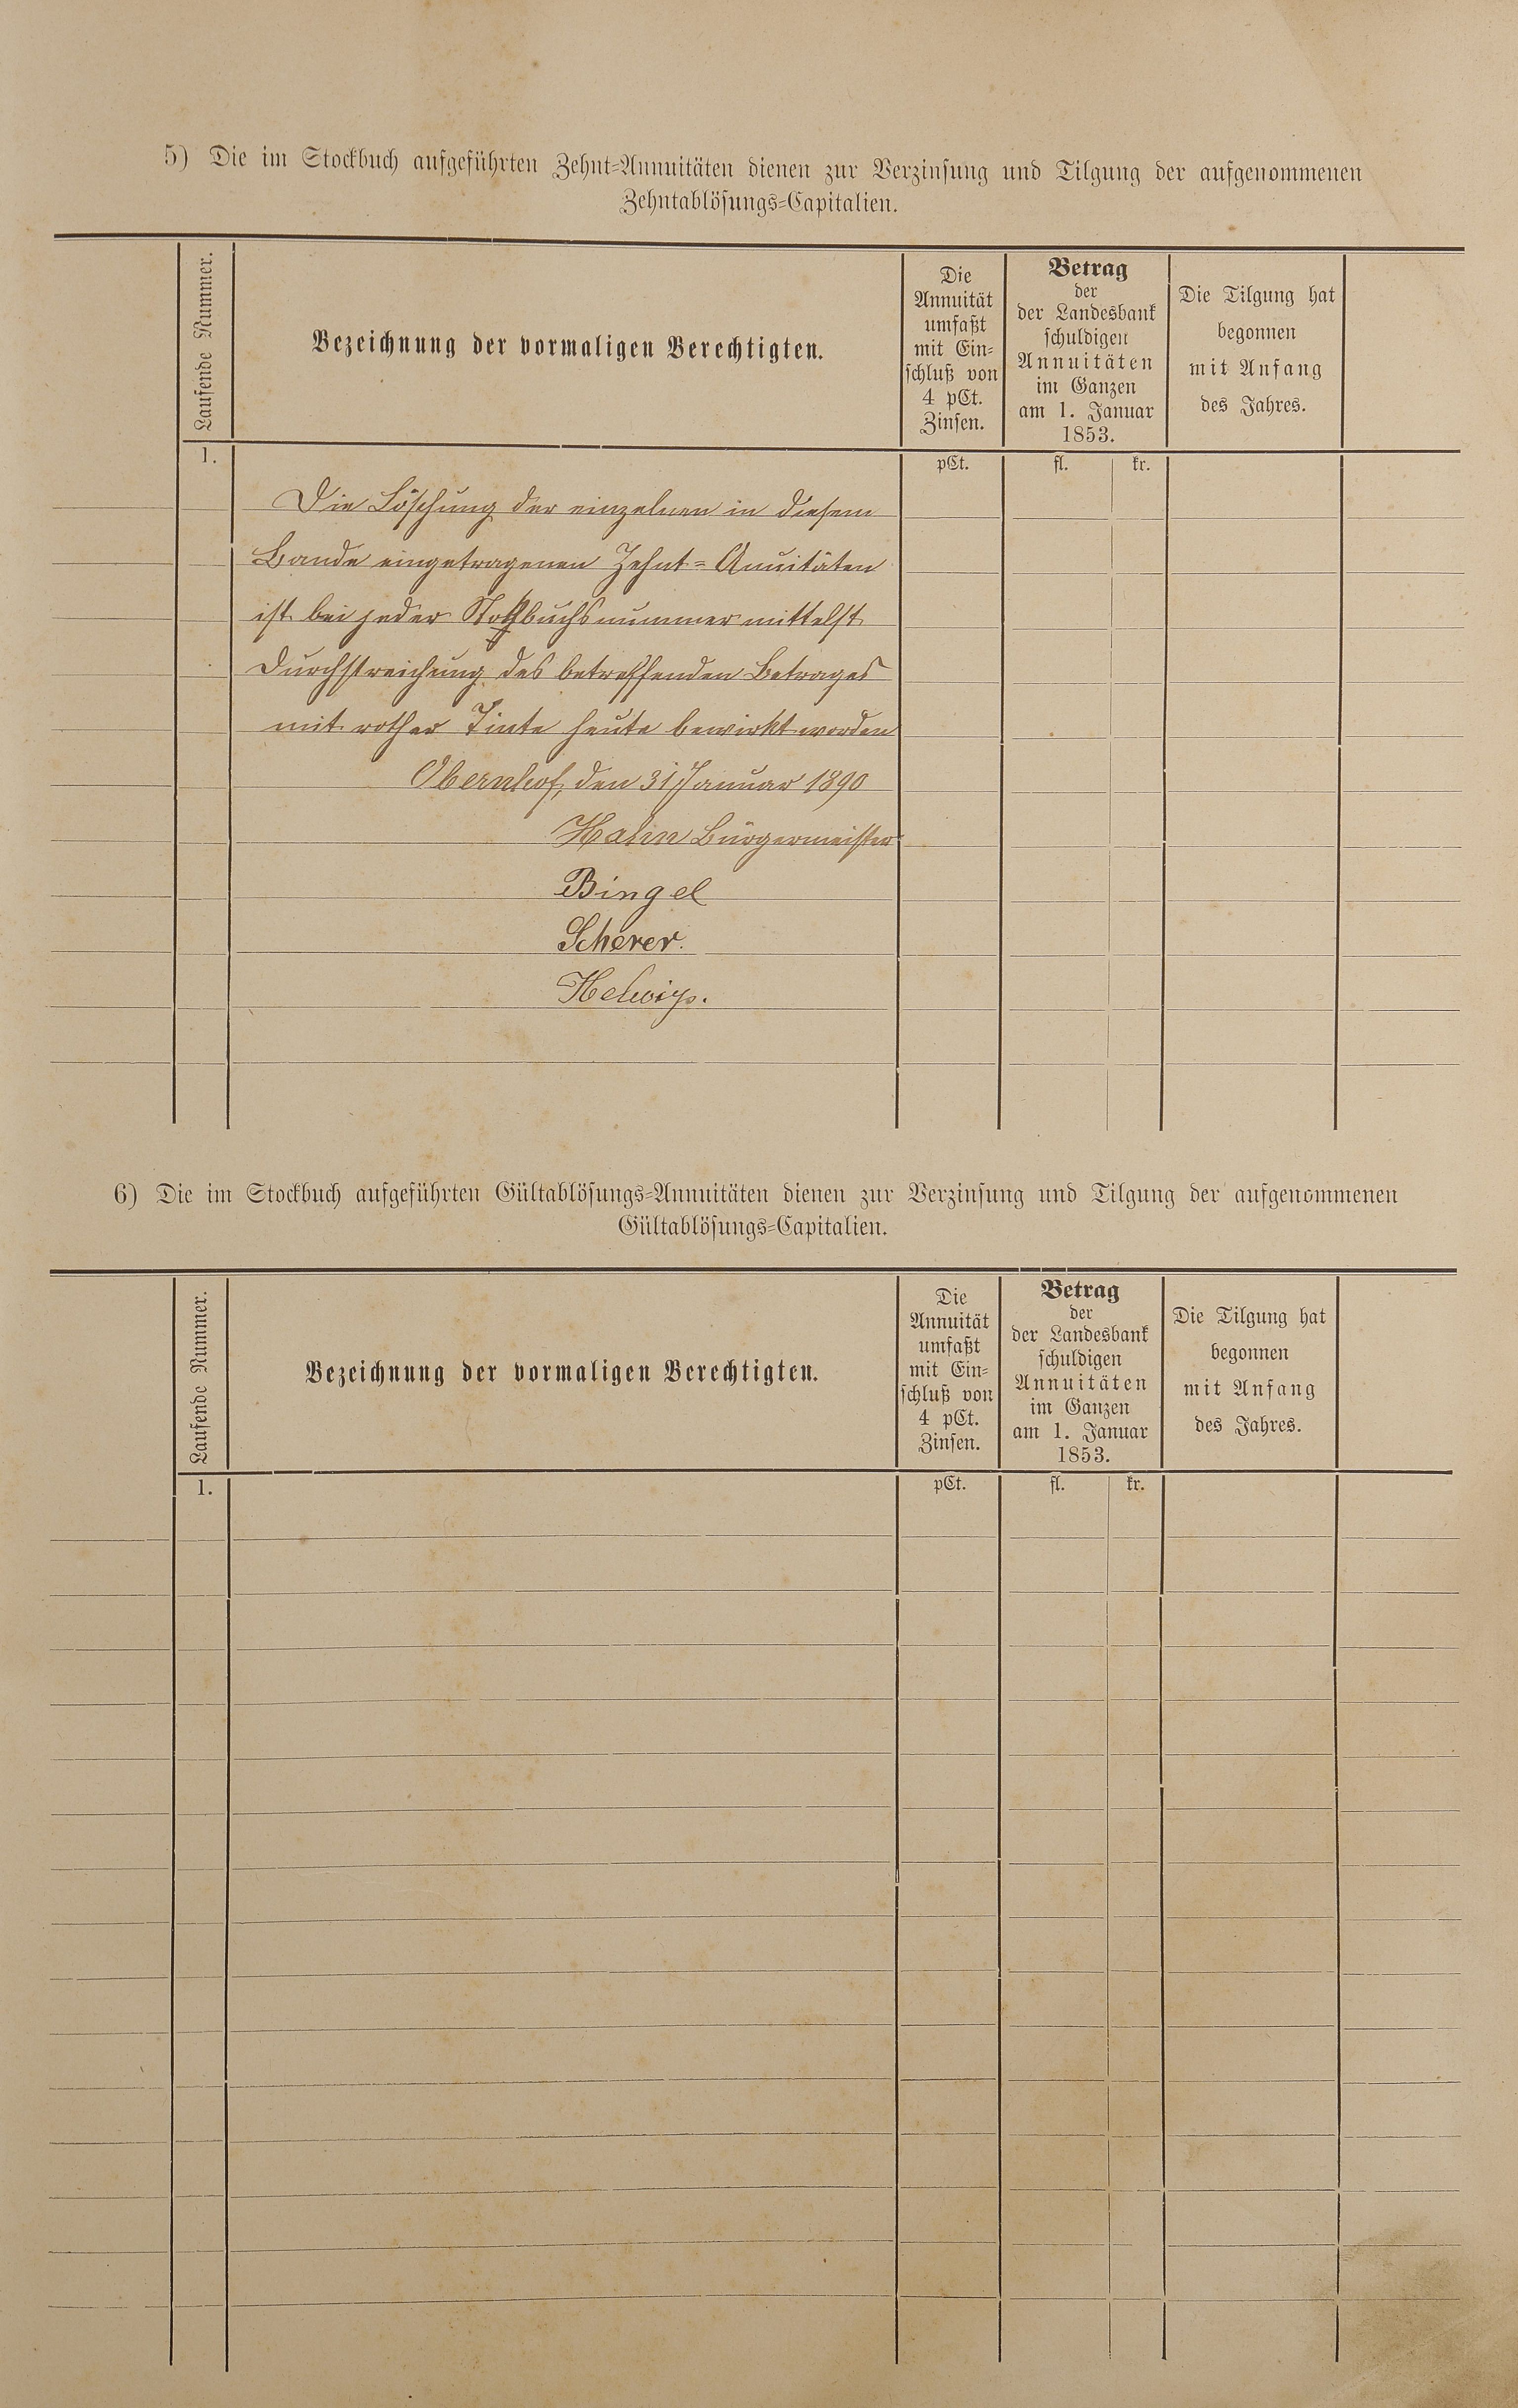 5) Die im Stockbuch aufgeführten Zehnt-Annuitäten dienen zur Verzinsung und Tilgung der aufgenommenen
Zehntablösungs-Capitalien.
Laufende Nummer.
Bezeichnung der vormaligen Berechtigten.
Die
Annuität
umfaßt
mit Ein-
schluß von
4 pCt.
Zinsen.
Betrag
der
der Landesbank
schuldigen
Annuitäten
im Ganzen
am 1. Januar
1853.
Die Tilgung hat
begonnen
mit Anfang
des Jahres.
1.
pCt.
fl.
kr.
Die Löschung der einzelnen in diesem
Bande eingetragenen Zehnt-Anuitäten
ist bei jeder Stockbuchsnummer mittelst
Durchstreichung des betreffenden Betrages
mit rother Tinte heute bewirkt worden
Obernhof, den 31 Januar 1890
Hahn Bürgermeister
Bingel
Scherer.
Helwig.
6) Die im Stockbuch aufgeführten Gültablösungs-Annuitäten dienen zur Verzinsung und Tilgung der aufgenommenen
Gültablösungs-Capitalien.
Laufende Nummer.
Bezeichnung der vormaligen Berechtigten.
Die
Annuität
umfaßt
mit Ein-
schluß von
4 pCt.
Zinsen.
Betrag
der
der Landesbank
schuldigen
Annuitäten
im Ganzen
am 1. Januar
1853.
Die Tilgung hat
begonnen
mit Anfang
des Jahres.
1.
pCt.
fl.
kr.